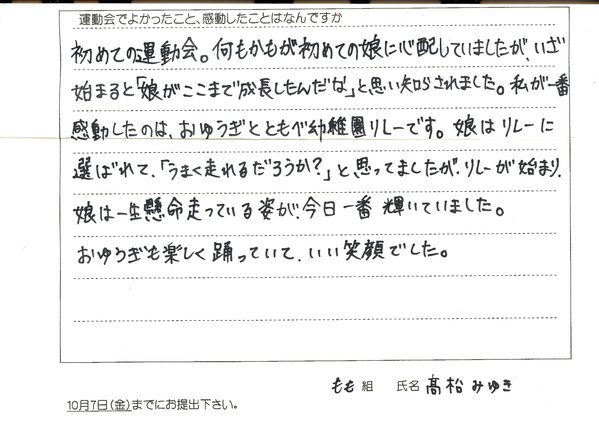 運動会でよかったこと、感動したことはなんですか
初めての運動会。何もかもが初めての娘に心配していましたが、いざ
始まると「娘がここまで成長したんだな」と思い知らされました。私が一番
感動したのは、おゆうぎとともべ幼稚園リレーです。娘はリレーに
選ばれて、「うまく走れるだろうか?」と思ってましたが、リレーが始まり、
娘は一生懸命走っている姿が、今日一番輝いていました。
おゆうぎも楽しく踊っていて、いい笑顔でした。
もも 組 氏名 髙松 みゆき
10月7日(金)までにお提出下さい。